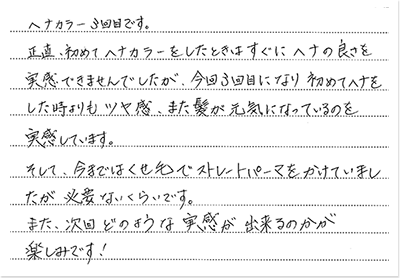 ヘナカラー3回目です。
正直、初めてヘナカラーをしたときはすぐにヘナの良さを
実感できませんでしたが、今回3回目になり初めてヘナを
した時よりもツヤ感、また髪が元気になっているのを
実感しています。
そして、今まではくせ毛でストレートパーマをかけていまし
たが必要ないくらいです。
また、次回どのような実感が出来るのかが
楽しみです!